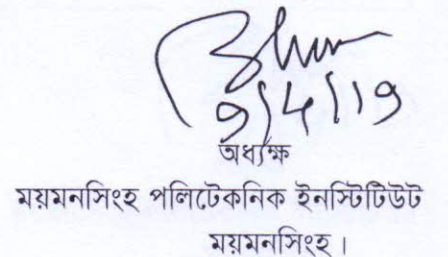 9/4/19
অধ্যক্ষ
ময়মনসিংহ পলিটেকনিক ইনস্টিটিউট
ময়মনসিংহ।